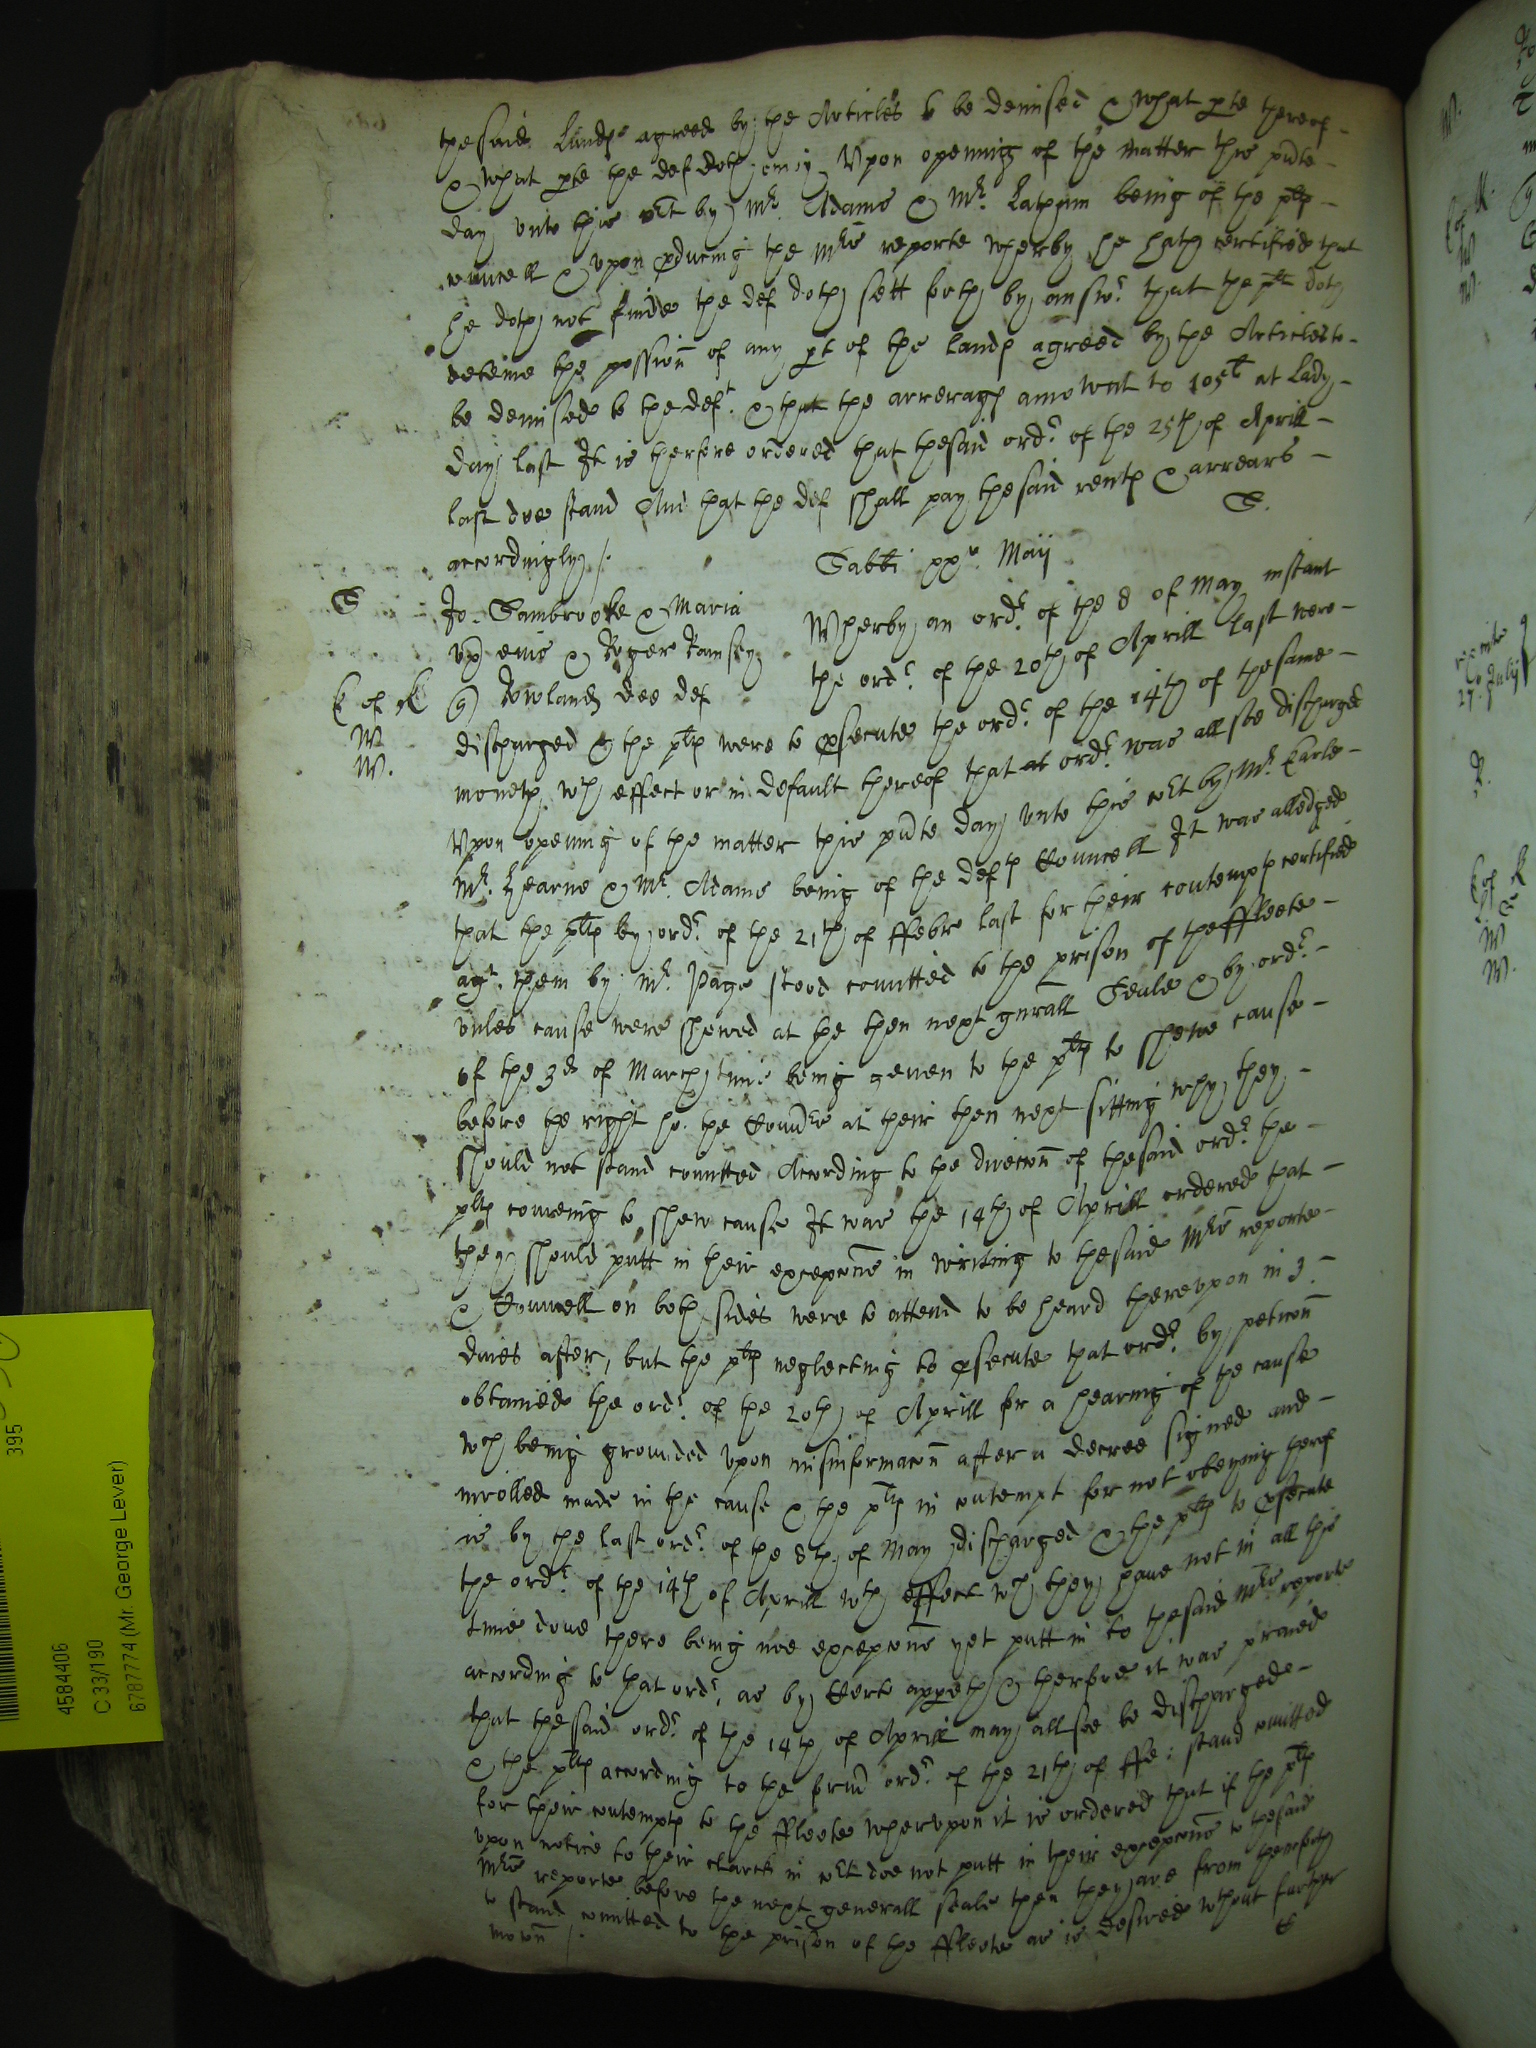 thesaid Lands agreed by the Articles to be demised & what pte thereof
& what pte the def doth enioy Vpon opening of the matter this pnte
day vnto this Cot by Mr. Adams & Mr. being of the plts
councell & vpon pducing the Mrs reporte wherby he hath certified that
he doth not finde the def doth sett forth by answr. that the plt doth
deteine the possion of any pt of the lands agreed by the Articles to
be demised to the deft. & that the arrerags amount to 105li at Lady
day last It is therfore ordered that thesaid ordr. of the 25th of Aprill
last doe stand And that the def shall pay thesaid rents & arrears
accordingly /.
S.
Sabbti xxo Maij
S
Jo. Sambrooke & Maria
vx eius & Roger Ramsey
Q Rowland Dee def
K of K
W
W.
Wherby an ordr. of the 8 of May instant
the ordr. of the 20th of Aprill last were
discharged & the plts were to psecute the ordr. of the 14th of thesame
moneth wth effect or in default thereof that ordr. was allsoe discharged
Vpon opening of the matter this pnte day vnto this cot by Mr. Earle
Mr. Hearne & Mr. Adams being of the defts Councell It was alledged
that the plts by ordr. of the 21th of ffebr last for their contempts certified
agt. them by Mr. Page stood comitted to the prison of the fleete
vnles cause were shewed at the then next gnrall Seale & by ordr.
of the 3d of March time being geuen to the plts to shewe cause
before the right ho. the Comrs at their then next sitting why they
should not stand comitted According to the direccon of thesaid ordr. the
plts comeing to shew cause It was the 14th of Aprill ordered that
they should putt in their excepcons in writing to thesaid Mrs reporte
& Councell on both sides were to attend to be heard therevpon in 3
daies after, but the plts neglecting to psecute that ordr. by peticon
obtained the ordr. of the 20th of Aprill for a hearing of the cause
wch being grounded vpon misinformacon after a decree signed and
inrolled made in the cause & the plts in contempt for not obeying therof
is by the last ordr. of the 8th of May discharged & the plts to psecute
the ordr. of the 14th of Aprill wth effect wch they haue not in all this
time done there being noe excepcons yet putt in to thesaid Mrs reporte
according to that ordr. as by Certe appeth & therfore it was praied
that thesaid ordr. of the 14th of Aprill may allsoe be discharged
& the plts according to the formr ordr. of the 21th of ffe: stand comitted
for their contempts to the ffleete wherevpon it is ordered that if the plts
vpon notice to their clarck in cot doe not putt in their excepcons to thesaid
Mrs reporte before the next generall seale then they are from thenceforth
to stand comitted to the prison of the ffleete as is desired wthout further
mocon /.
4584406
C 33/190
6787774 (Mr. George Lever)
395